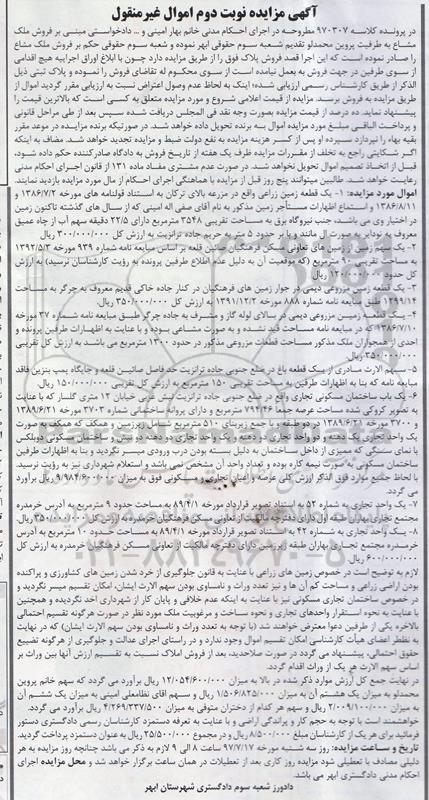 آگهی مزایده نوبت دوم اموال غیرمنقول
در پرونده کلاسه ۹۷۰۳۰۷ مطروحه در اجرای احکام مدنی خانم بهار امینی و .. دادخواستی مبنی بر فروش ملک
مشاع به طرفیت پروین محمدلو تقدیم شعبه سوم حقوقی ابهر نموده و شعبه سوم حقوقی حکم بر فروش ملک مشاع
را صادر نموده است که این اجرا قصد فروش پلاک فوق را از طریق مزایده دارد چون با ابلاغ اوراق اجراییه هیچ اقدامی
از سوی طرفین در جهت فروش به عمل نیامده است از سوی محکوم له تقاضای فروش را نموده و پلاک ثبتی ذیل
الذکر از طریق کارشناس رسمی ارزیابی شده؛ اینک به لحاظ عدم وصول اعتراض نسبت به ارزیابی مقرر گردید اموال از
طریق مزایده به فروش برسد. مزایده از قیمت اعلامی شروع و مورد مزایده متعلق به کسی است که بالاترین قیمت را
پیشنهاد نماید. ده درصد از قیمت مزایده بصورت وجه نقد فی المجلس دریافت شده سپس بعد از طی مراحل قانونی
و پرداخت الباقی مبلغ مورد مزایده اموال به برنده تحویل داده خواهد شد. در صورتیکه برنده مزایده در موعد مقرر
بقیه بهاء را نپردازد سپرده او پس از کسر هزینه مزایده به نفع دولت ضبط و مزایده تجدید خواهد شد. مضاف به اینکه
اگر شکایتی راجع به تخلف از مقررات مزایده ظرف یک هفته از تاریخ فروش به دادگاه صادرکننده حکم داده شود،
قبل از اتخاذ تصمیم اموال تحویل نخواهد شد. در صورت عدم مشتری مفاد ماده ۱۳۱ از قانون اجرای احکام مدنی
رعایت خواهد شد. طالبین میتوانند پنج روز قبل از مزایده با هماهنگی اجرای احکام از مال مورد مزایده بازدید نمایند.
اموال مورد مزایده: ۱- یک قطعه زمین زراعی واقع در مزرعه بالای ترکان به استناد قولنامه های مورخه ۱۳۸۶/۷/۲ و
۱۳۸۶/۸/۱۱ و استماع اظهارات مستأجر زمین مذکور به نام آقای صفی اله امینی که از سال های گذشته تاکنون زمین
در اختیار وی می باشد، جنب نیروگاه برق به مساحت تقریبی ۳۵۴۸ مترمربع دارای ۲۲/۵ دقیقه سهم آب از چاه عمیق
معروف به نودایر به صورت آل مانند و با بر حدود ۵ متر حریم جاده ترانزیت به ارزش کل ۳۰۰/۰۰۰/۰۰۰ ریال
۲- یک سهم از زمین های تعاونی مسکن فرهنگیان صائین قلعه بر اساس مبایعه نامه شماره ۹۳۹ مورخه ۱۳۹۲/۵/۳
به مساحت تقریبی ۹۰ مترمربع (که موقعیت آن به دلیل عدم اطلاع طرفین پرونده به رؤیت کارشناسان نرسید) به ارزش
کل حدود ۱۲۰/۰۰۰/۰۰۰ ریال
۳- یک قطعه زمین مزروعی دیمی در جوار زمین های فرهنگیان در کنار جاده خاکی قدیم معروف به چرگر به مساحت
۱۲۹۹/۱۴ طبق مبایعه نامه شماره ۸۸۸ مورخه ۱۳۹۱/۱۲/۲ به ارزش کل ۳۵۰/۰۰۰/۰۰۰ ریال.
۴- یک قطعه زمین مزروعی دیمی در بالای لوله گاز و مشرف به جاده چرگر طبق مبایعه نامه شماره ۳۷ مورخه
۱۳۸۶/۷/۱۰ که در مبایعه نامه مساحت قید نشده و به صورت مشاعی بوده و با عنایت به اظهارات طرفین پرونده و
احدی از همجواران ملک مذکور مساحت قطعات مزروعی مذکور در حدود ۱۳۰۰ مترمربع می باشد به ارزش کل
۳۵۰/۰۰۰/۰۰۰ ریال
۵- سهم الارث مادری از یک قطعه باغ در ضلع جنوبی جاده ترانزیت حد فاصل صائین قلعه و جایگاه پمپ بنزین فاقد
مبایعه نامه که بنا به اظهارات طرفین به مساحت تقریبی ۱۵۰ مترمربع به ارزش کل تقریبی ۱۵۰/۰۰۰/۰۰۰ ریال
۶- یک باب ساختمان مسکونی تجاری واقع در ضلع جنوبی جاده ترانزیت نبش غربی خیابان ۱۲ متری گلسار که با عنایت
به تصویر کروکی شده مساحت عرصه جمعاً ۷۹۴/۴۶ مترمربع و دارای پروانه ساختمانی شماره ۳۷۰۳ مورخه ۱۳۸۹/۶/۲۱
و ۳۷۰۰ مورخه ۱۳۸۹/۶/۲۱ در دو طبقه با جمع زیربنای ۵۱۰ مترمربع دارای زیرزمین و همکف که همکف به صورت
یک واحد تجاری باز و در واحد طبقه اول به صورت پنج دهنه و واحد تجاری دو دهنه در نبش و ساختمان مسکونی دوبلکس
با نمای سنگی که ممیزی از داخل ساختمان به دلیل بسته بودن درب ورودی میسر نگردید و بنا به اظهارات طرفین
ساختمان مسکونی به صورت نیمه کاره بوده و تعداد واحد آن مشخص نمی باشد و استعلام شهرداری نیز به رؤیت نرسید.
با لحاظ جمیع موارد فوق الذکر ارزش کلی عرصه و اعیان تجاری و مسکونی فوق به میزان ریال برآورد
می گردد.
۷- یک واحد تجاری به شماره ۵۲ به استناد تصویر قرارداد مورخه ۸۹/۴/۱ به مساحت حدود ۹ مترمربع به آدرس خرمدره
مجتمع تجاری بهاران طبقه اول دارای دفترچه مالکیت از تعاونی مسکن فرهنگیان خرمدره به ارزش کل ۳۵۰/۰۰۰/۰۰۰ ریال.
۸- یک واحد تجاری به شماره ۴۲ به استناد تصویر قرارداد مورخه ۸۹/۴/۱ به مساحت حدود ۱۰ مترمربع به آدرس
خرمدره مجتمع تجاری بهاران طبقه زیرزمین دارای دفترچه مالکیت از تعاونی مسکن فرهنگیان خرمدره به ارزش کل
۶۰۰/۰۰۰/۰۰۰ ریال
لازم به توضیح است در خصوص زمین های زراعی با عنایت به قانون جلوگیری از خرد شدن زمین های کشاورزی و پراکنده
بودن اراضی زراعی و مساحت کم آن ها و نیز تعدد وراث و نامساوی بودن سهم الارث ایشان، امکان تقسیم میسر نگردید و
در خصوص ساختمان تجاری مسکونی نیز با عنایت به اینکه عدم خلافی و پایان کار از شهرداری اخذ نگردیده و همچنین
با عنایت به نحوه استقرار واحدهای تجاری و نحوه ساخت و مرغوبیت ملک مورد نظر در صورت هرگونه تقسیم احتمالی
بالاخره یکی از طرفین دعوا معترض خواهند شد (با توجه به تعدد وراث و نامساوی بودن سهم الارث ایشان) که در نهایت
به نظر اعضای هیأت کارشناسی امکان تقسیم اموال وجود ندارد و در راستای اجرای عدالت و جلوگیری از هرگونه تضییع
حقوق احتمالی، پیشنهاد می گردد در صورت صلاحدید، بعد از فروش املاک نسبت به تقسیم ارزش آنها بین وراث بر
اساس سهم الارث هر یک از وراث اقدام گردد.
در نهایت جمع کل ارزش موارد ذکر شده در بالا به میزان ۱۲/۰۵۴/۶۰۰/۰۰۰ ریال برآورد می گردد که سهم خانم پروین
محمدلو به میزان یک هشتم آن به میزان ۱/۵۰۶/۸۲۵/۰۰۰ ریال و سهم آقای نظامعلی امینی به میزان یک ششم آن
به میزان ۲/۰۰۹/۱۰۰/۰۰۰ ریال و سهم هر کدام از دختران متوفی به میزان ۴/۲۶۹/۳۳۷/۵۰۰ ریال برآورد می گردد.
خواهشمند است با توجه به حجم کار و پراکندگی اراضی و با عنایت به تعرفه دستمزد کارشناسان رسمی دادگستری دستور
فرمایید برای هر یک از کارشناسان مبلغ ۸/۵۰۰/۰۰۰ ریال و در مجموع ۲۵/۵۰۰/۰۰۰ ریال به عنوان دستمزد پرداخت گردید.
تاریخ و ساعت مزایده: روز سه شنبه مورخه ۹۷/۷/۱۷ ساعت ۸ الی ۹ لازم به ذکر می باشد چنانچه روز مزایده به هر
دلیلی مصادف با تعطیلی شود مزایده روز کاری بعد از تعطیلات در همان ساعت برگزار خواهد شد و محل مزایده اجرای
احکام مدنی دادگستری ابهر می باشد.
دادورز شعبه سوم دادگستری شهرستان ابهر